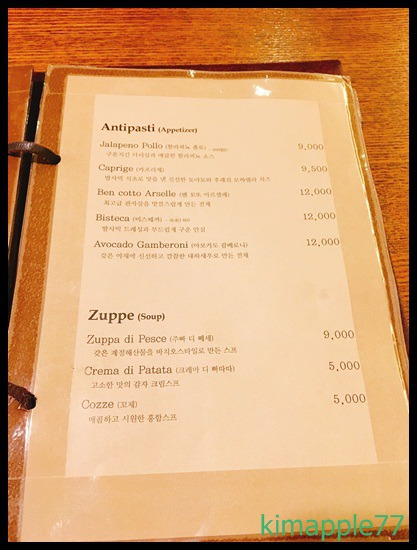 Antipasti (Appetizer)
Jalapeno Pollo (할라피뇨 뽈로) 9,000
구운치킨 다리살과 매콤한 할라피뇨 소스
Caprige (카프리제) 9,500
발사믹 식초로 맛을 낸 신선한 토마토와 후레쉬 모짜렐라 치즈
Ben cotto Arselle (벤 꼬또 아르셀레) 12,000
최고급 관자살을 맛깔스럽게 만든 전채
Bisteca (비스떼까) 12,000
발사믹 드레싱과 부드럽게 구운 안심
Avocado Gamberoni (아보카도 감베로니) 12,000
갖은 야채에 신선하고 깔끔한 대하새우로 만든 전채
Zuppe (Soup)
Zuppa di Pesce (주빠 디 뻬세) 9,000
갖은 제철해산물을 바치오스타일로 만든 스프
Crema di Patata (크레마 디 빠따따) 5,000
고소한 맛의 감자 크림스프
Cozze (꼬제) 5,000
매콤하고 시원한 홍합스프
kimapple77